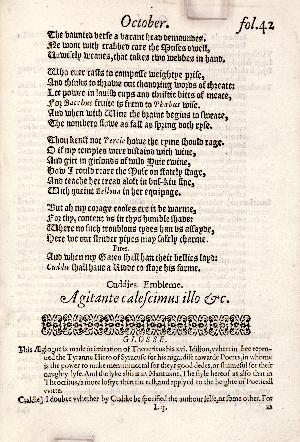 October. fol.42
The vaunted verse a vacant head demaundes,
Ne wont with crabbed care the Muses dwell,
Unwisely weaves, that takes two webbes in hand.
Who ever casts to compasse weightye prise,
And thinks to throwe out thondring words of threate:
Let powre in lavish cups and thriftie bitts of meate,
For Bacchus fruite is frend to Phœbus wise.
And when with Wine the braine begins to sweate,
The nombers flowe as fast as spring doth ryse.
Thou kenst not Percie howe the ryme should rage.
O if my temples were distaind with wine,
And girt in girlonds of wild Yvie twine,
How I could reare the Muse on stately stage,
And teache her tread aloft in bus-kin fine,
With queint Bellona in her equipage.
But ah my corage cooles ere it be warme,
For thy, content us in thys humble shade:
Where no such troublous tydes han us assayde,
Here we our slender pipes may safely charme.
Pires.
And when my Gates shall han their bellies layd:
Cuddie shall have a Kidde to store his farme.
Cuddies Embleme.
Agitante calescimus illo &c.
GLOSSE.
This Æglogue is made in imitation of Theocritus his xvi. Idilion, wherein hee reproved the Tyranne Hiero of Syracuse for his nigardise towarde Poetes, in whome
is the power to make men immortal for theyr good dedes, or shameful for their
naughty lyfe. And the lyke also is in Mantuane. The style hereof as also that in
Theocritus, is more loftye then the rest, and applyed to the heighte of Poeticall
witte.
Cuddie) I doubte whether by Cuddie be specified the authour selfe, or some other. For